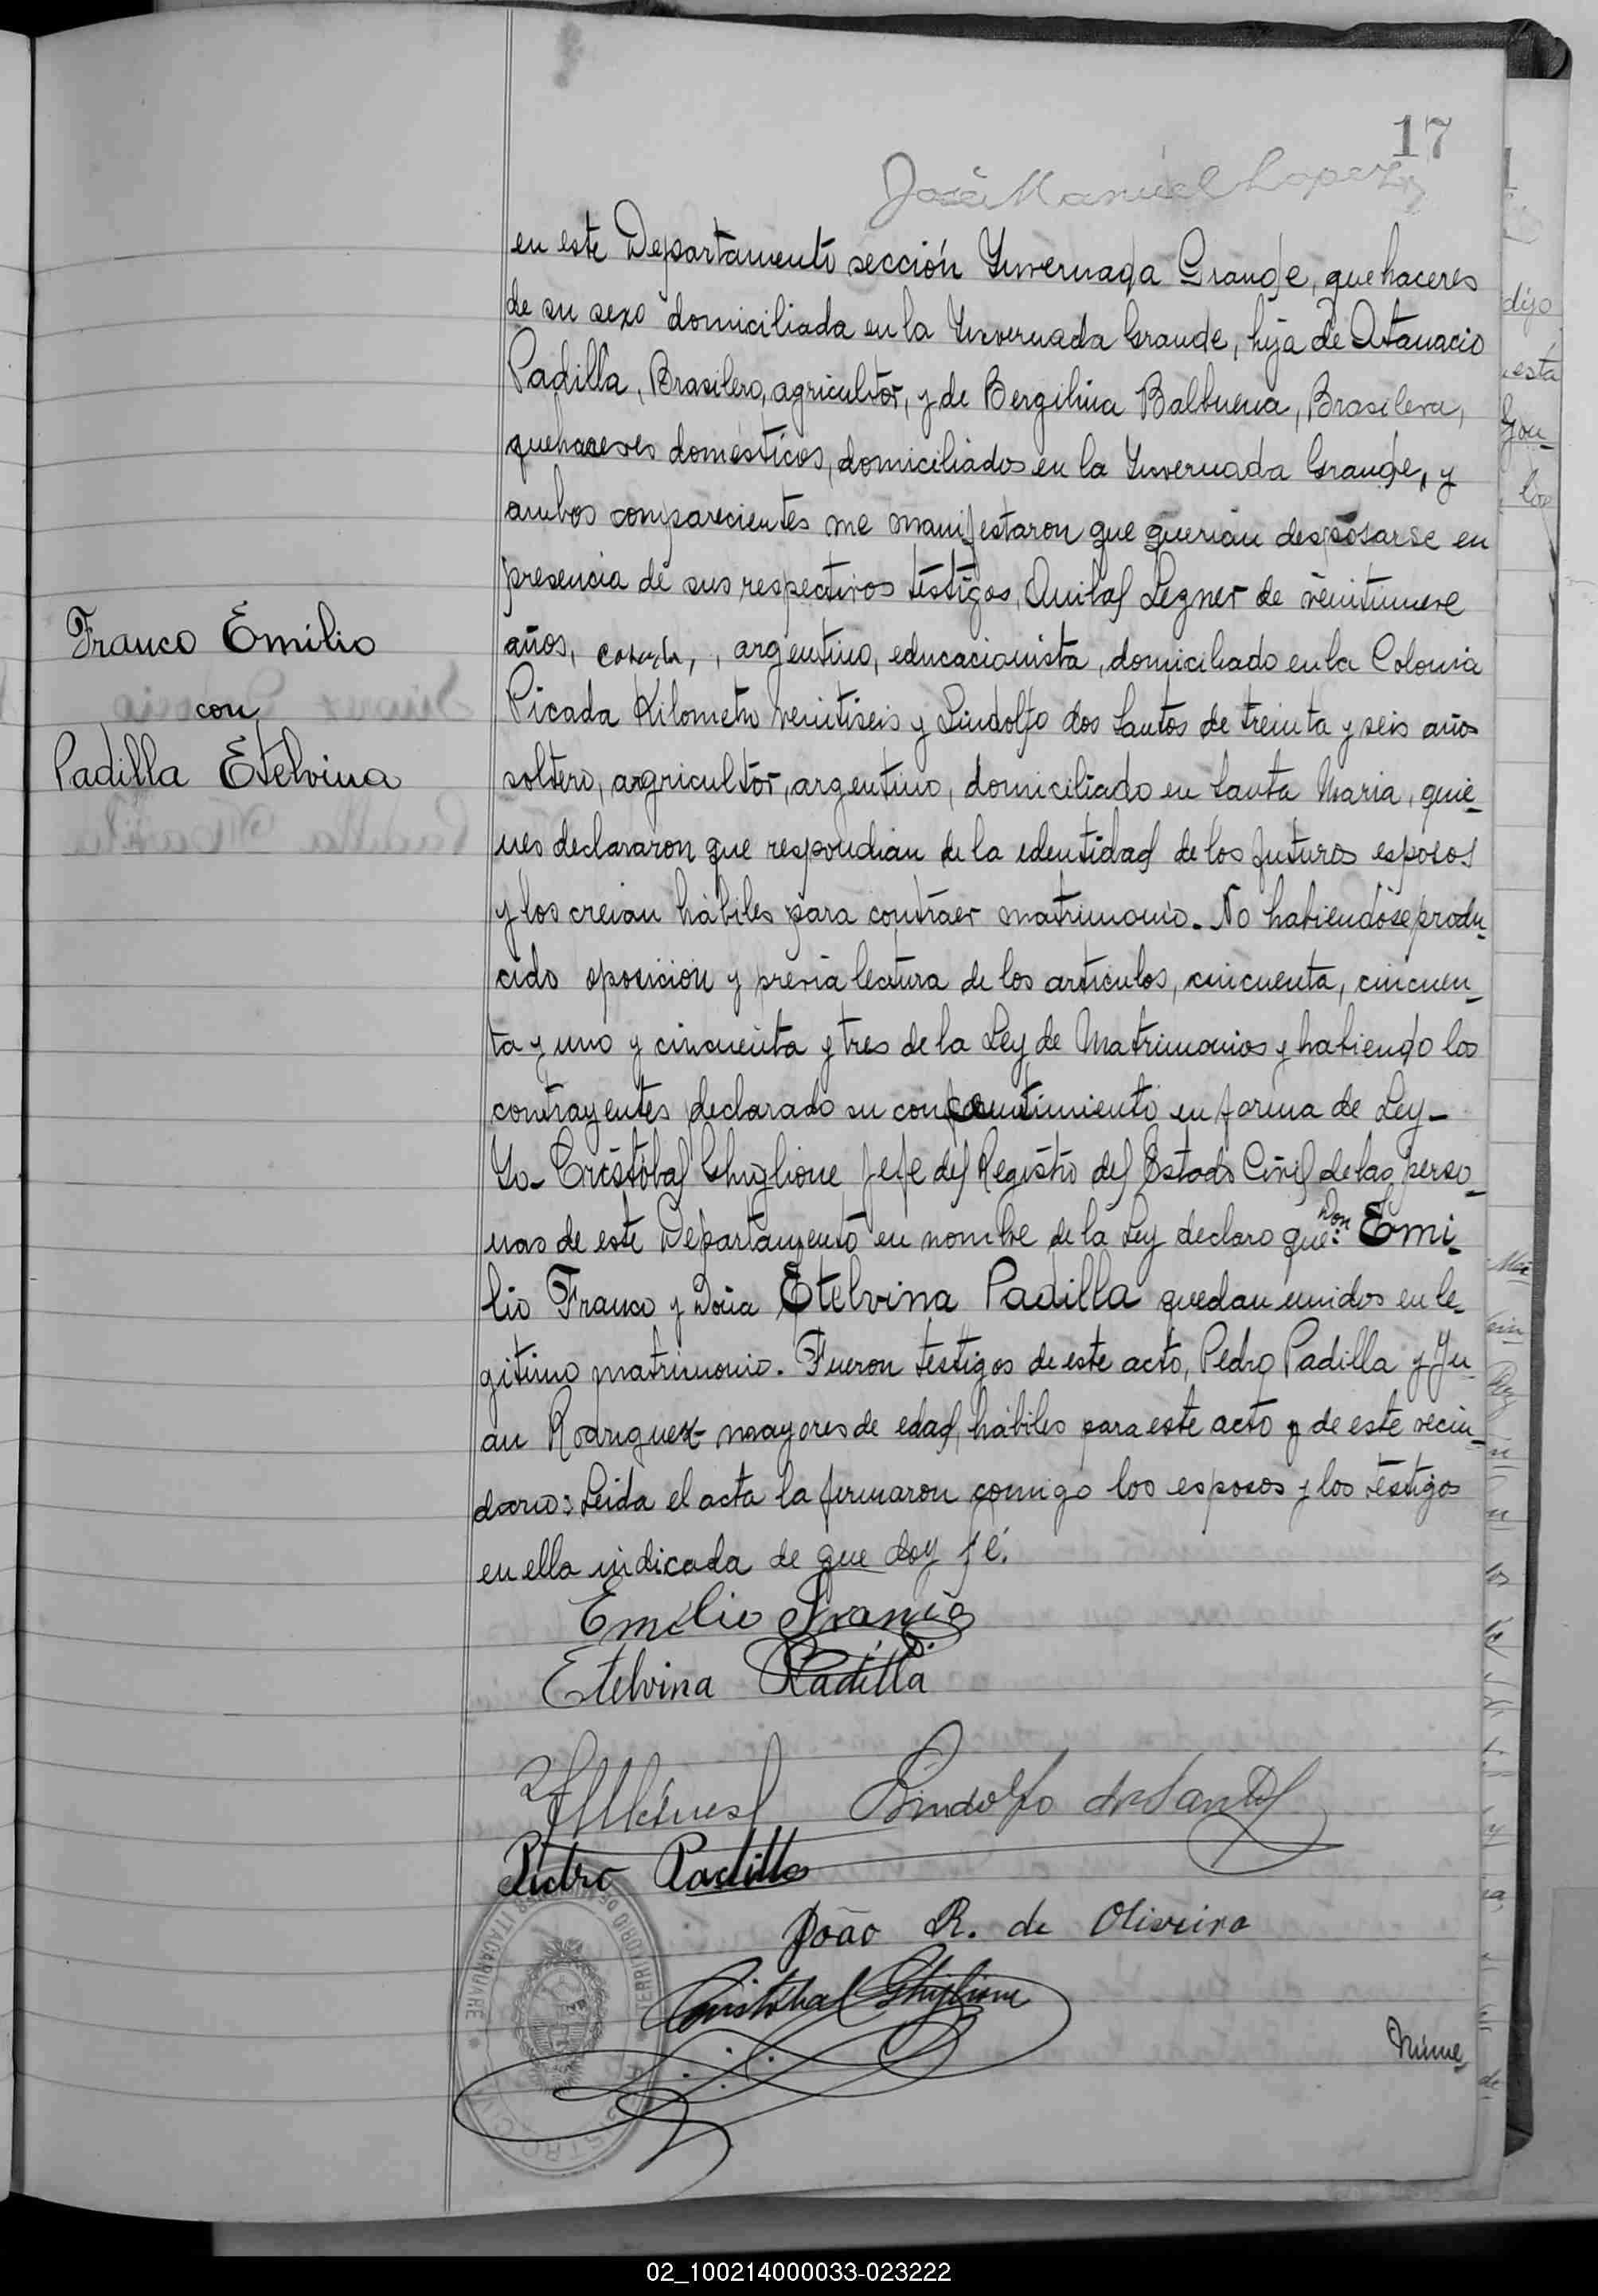 17
José Manuel Lopez
en este Departamento sección Ynvernada Grande, quehaceres
de su sexo domiciliada en la Ynvernada Grande, hija de Atanacio
Padilla, Brasilero, agricultor, y de Bergilina Balbuena, Brasilera,
quehaceres domésticos, domiciliados en la Ynvernada Grande, y
ambos comparecientes me manifestaron que querian desposarse en
presencia de sus respectivos testigos, Legner de veintinueve
años, casado, argentino, educacionista, domiciliado en la Colonia
Franco Emilio
con
Padilla Etelvina
Picada Kilometro veintiseis y Lindolfo dos Santos de treinta y seis años
soltero, agricultor, argentino, domiciliado en Santa Maria, quie-
nes declararon que respondian de la edentidad de los futuros esposos
y los creian hábiles para contraer matrimonio. No habiendose produ-
cido oposición y previa lectura de los artículos, cincuenta, cincuen-
ta y uno y cincuenta y tres de la Ley de Matrimonios y habiendo los
contrayentes declarado su consentimiento en forma de Ley-
Yo- Cristóbal Ghiglione Jefe del Registro del Estado Civil de las perso-
nas de este Departamento en nombre de la Ley declaro que: Don Emi-
lio Franco y Doña Etelvina Padilla quedan unidos en le-
gitimo matrimonio. Fueron testigos de este acto, Pedro Padilla y Ju-
an Rodriguez mayores de edad, hábiles para este acto y de este vecin-
dario: Leida el acta la firmaron comigo los esposos y los testigos
en ella indicada de que doy fé.
Emilio Franco
Etelvina Padilla
Lindolfo dos Santos
Pedro Padilla
João R. de Oliveira
Cristóbal Ghiglione
Núme
02_100214000033-023222